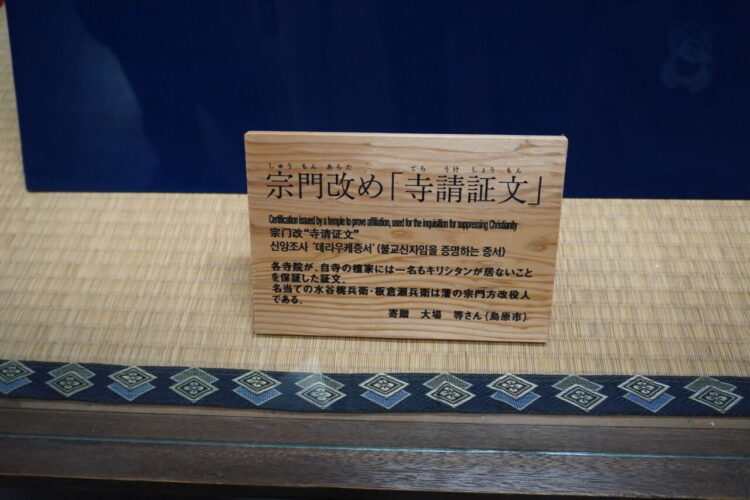 しゅう もん あらた てら うけ しょう もん
宗門改め「寺請証文」
Certification issued by a temple to prove affiliation, used for the inquisition for suppressing Christianity
宗门改“寺请证文”
신앙조사 '데라우케증서' (불교신자임을 증명하는 증서)
各寺院が、自寺の檀家には一名もキリシタンが居ないこと
を保証した証文。
名当ての水谷梶兵衛・板倉瀬兵衛は藩の宗門方改役人
である。
寄贈 大場 等さん（島原市）